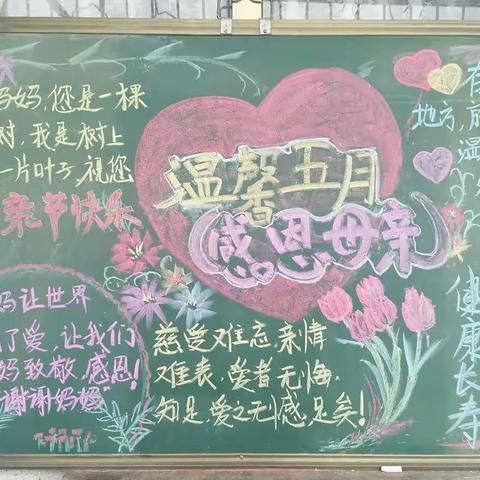 妈妈,您是一棵
树,我是树上
一片叶子,祝您
亲节快乐
温馨五月
感恩母亲
妈让世界
了爱,让我们
妈致敬,感恩!
谢谢妈妈
慈爱难忘,亲情
难表,爱者无悔,
知是,爱之无憾足矣!
地方,
温
健康长寿